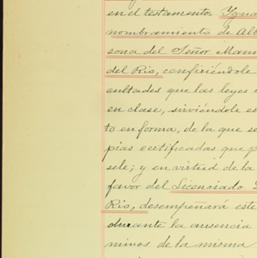 en el testamento Ygna
nombramiento de Alb
sona del Señor Manu
del Rio, confiriéndole
cultades que las leyes
en clase, sirviéndole es
to en forma, de la que se
pias certificadas que p
sele; y en virtud de la
favor del Licenciado
Rio, desempeñará este
durante la ausencia
minos de la misma